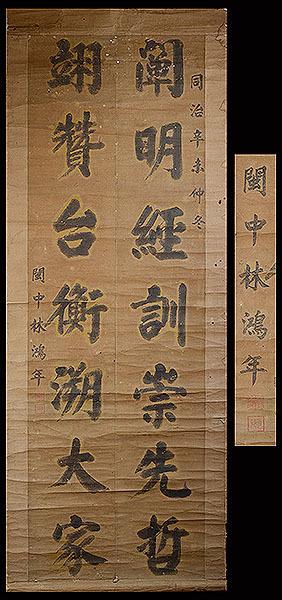 同治辛未仲冬
阐明經訓崇先哲
翊贊台衡溯大家
閩中林鴻年
閩中林鴻年